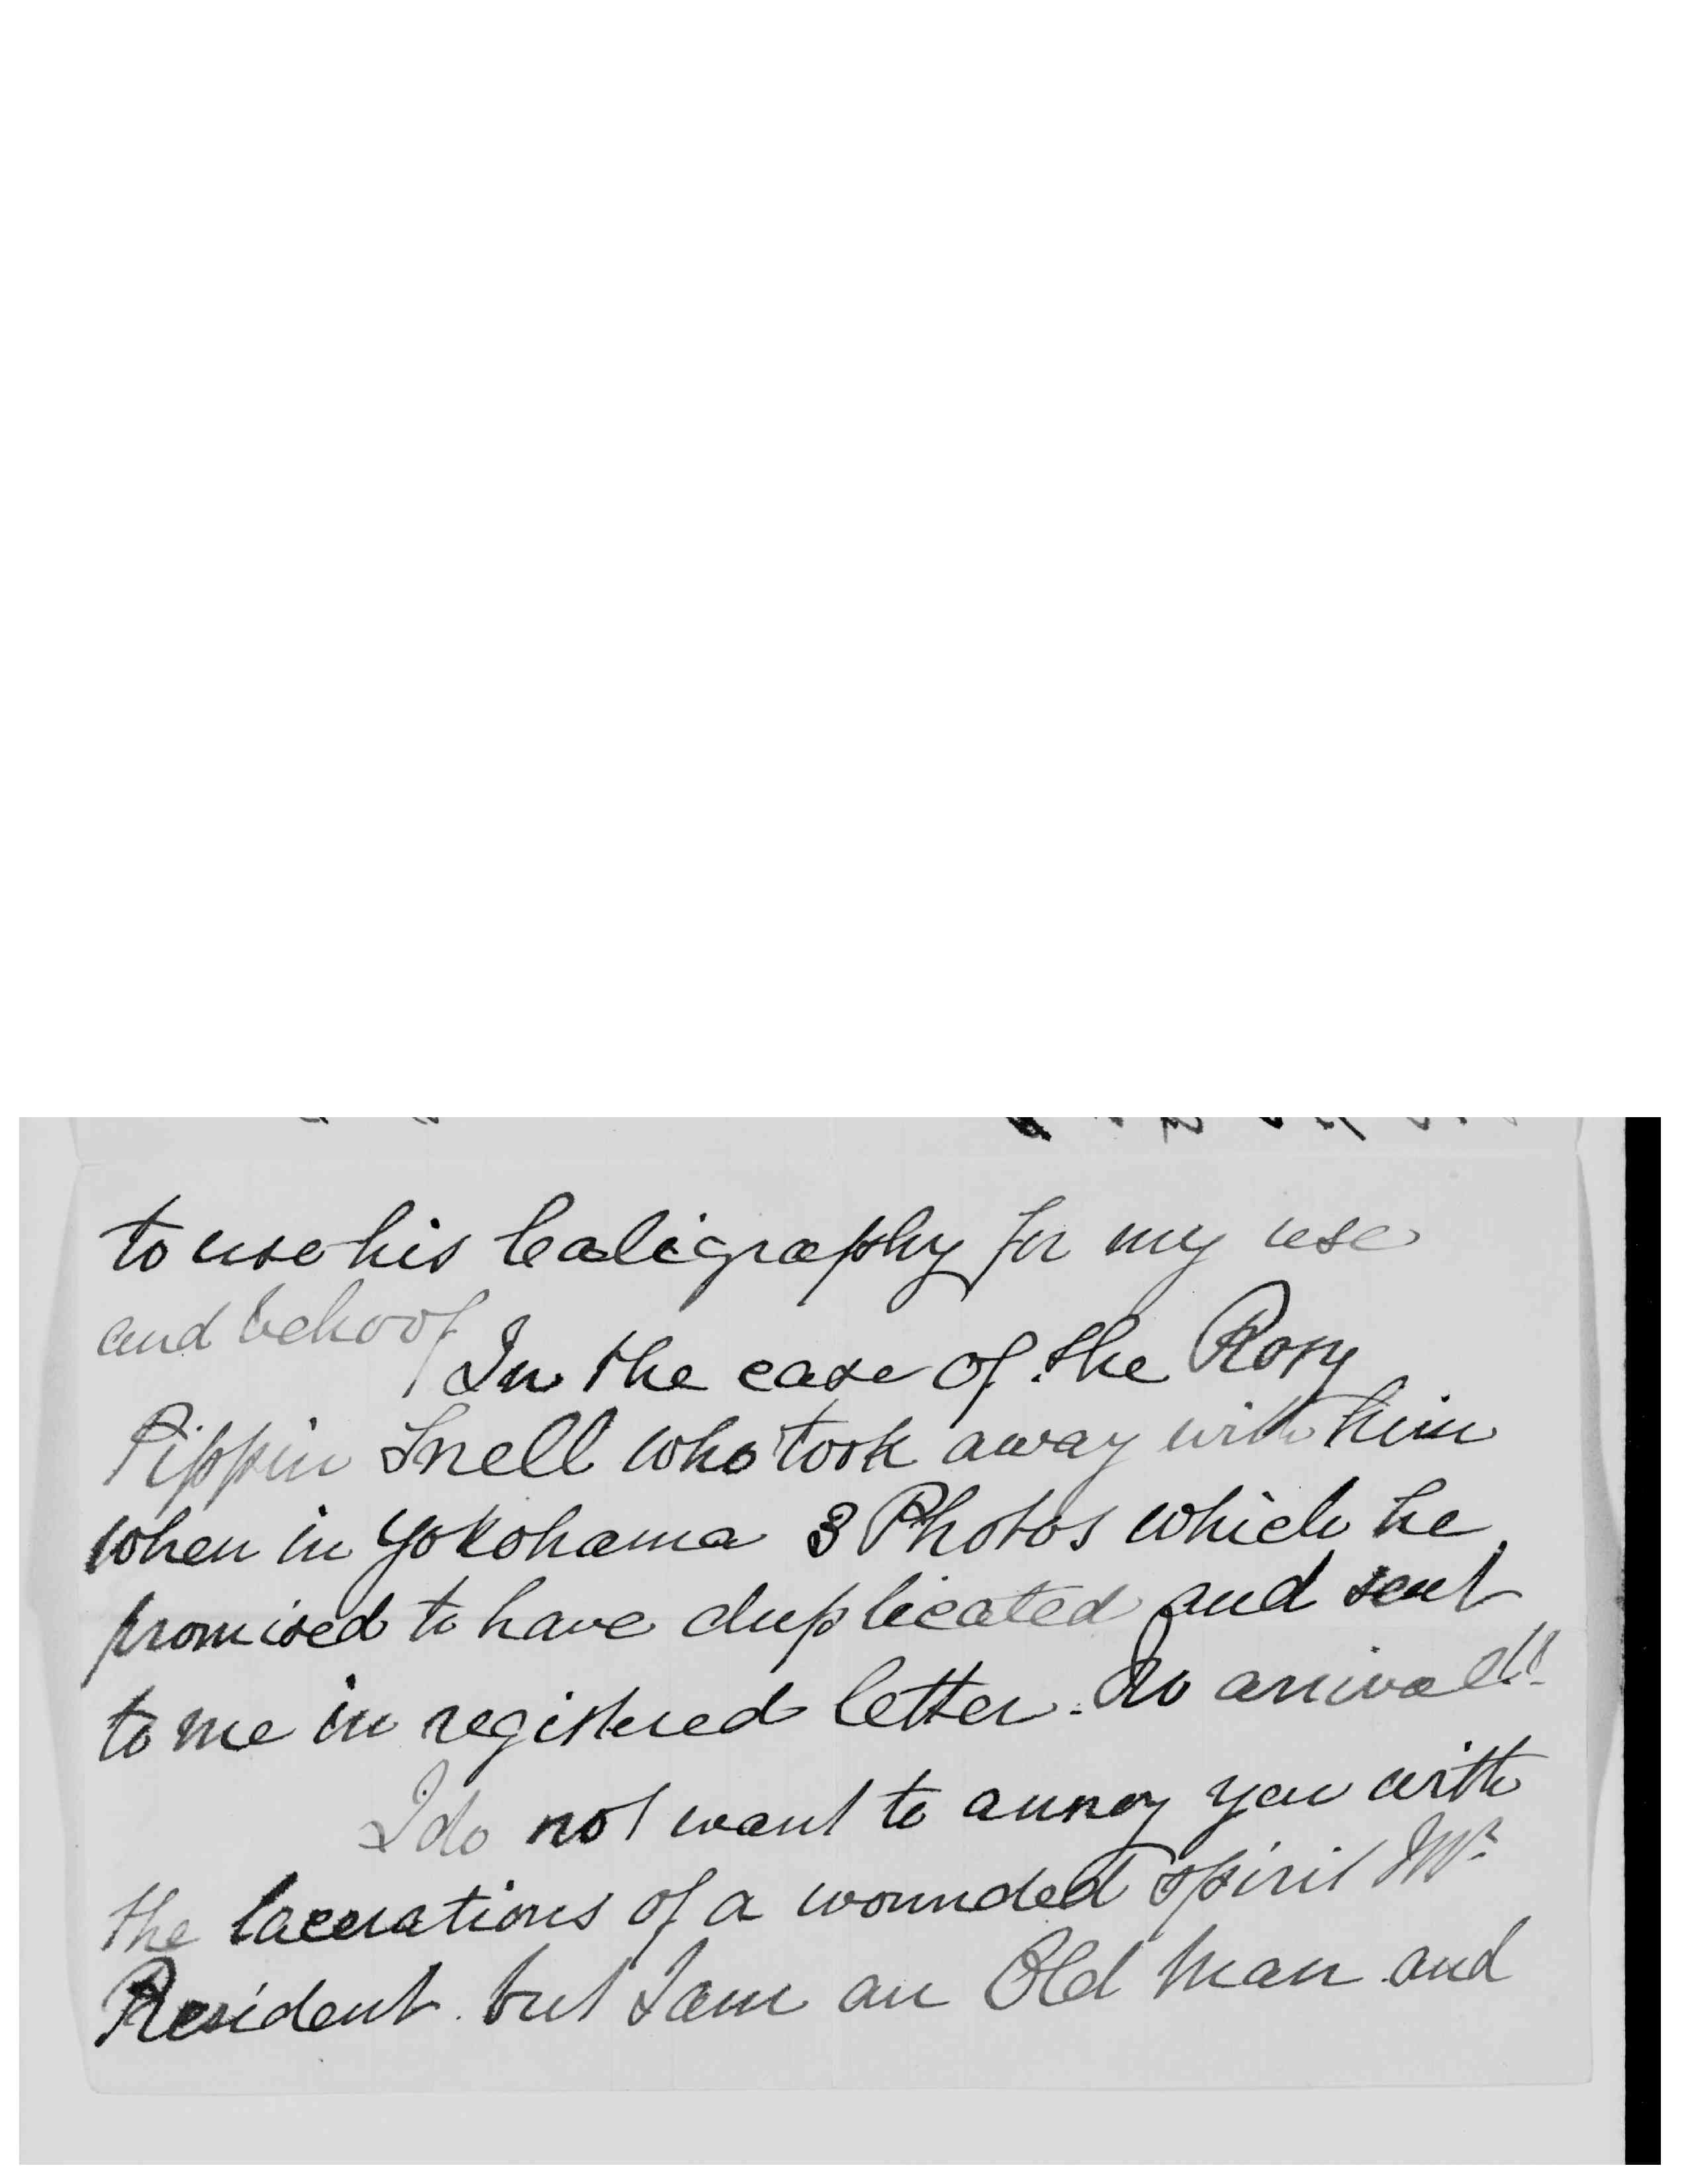 to use his Caligraphy for my use
and behoof
In the case of the Rosy
Pippin Snell who took away with him
when in Yokohama 3 Photos which he
promised to have duplicated and sent
to me in registered letter. No arrivals.
I do not want to annoy you with
the lacerations of a wounded spirit Mr.
President. but I am an Old Man and